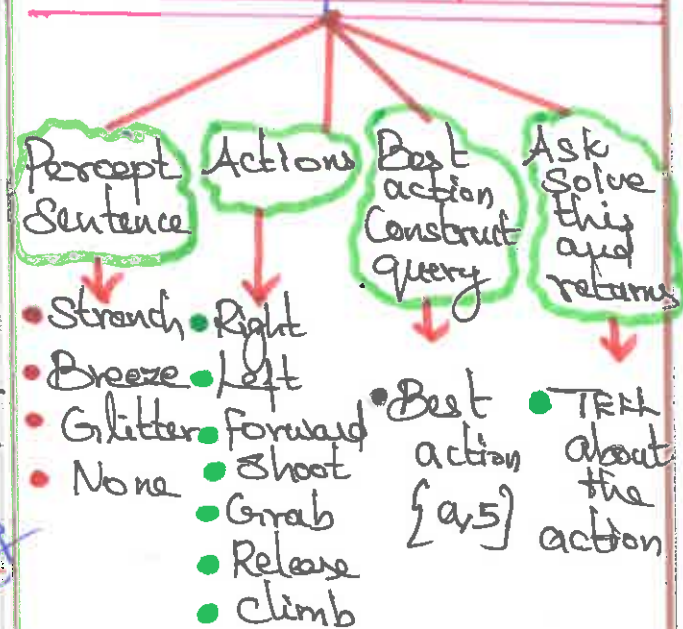 Percept
Sentence
Actions
Best
action
Construct
query
Ask
Solve
this
and
returns
Strench
Breeze
Glitter
None
Right
Left
Forward
Shoot
Grab
Release
climb
Best
action
{a,5}
TELL
about
the
action